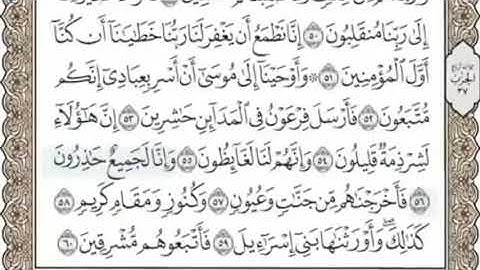 إِلَىٰ رَبِّنَا مُنقَلِبُونَ ٥٠ إِنَّا نَطْمَعُ أَن يَغْفِرَ لَنَا رَبُّنَا خَطَٰيَٰنَآ أَن كُنَّآ
أَوَّلَ ٱلْمُؤْمِنِينَ ٥١ ۞ وَأَوْحَيْنَآ إِلَىٰ مُوسَىٰٓ أَنْ أَسْرِ بِعِبَادِىٓ إِنَّكُم
مُّتَّبَعُونَ ٥٢ فَأَرْسَلَ فِرْعَوْنُ فِى ٱلْمَدَآئِنِ حَٰشِرِينَ ٥٣ إِنَّ هَٰٓؤُلَآءِ
لَشِرْذِمَةٌ قَلِيلُونَ ٥٤ وَإِنَّهُمْ لَنَا لَغَآئِظُونَ ٥٥ وَإِنَّا لَجَمِيعٌ حَٰذِرُونَ
٥٦ فَأَخْرَجْنَٰهُم مِّن جَنَّٰتٍ وَعُيُونٍ ٥٧ وَكُنُوزٍ وَمَقَامٍ كَرِيمٍ ٥٨
كَذَٰلِكَ وَأَوْرَثْنَٰهَا بَنِىٓ إِسْرَٰٓءِيلَ ٥٩ فَأَتْبَعُوهُم مُّشْرِقِينَ ٦٠
الحزب
٣٧